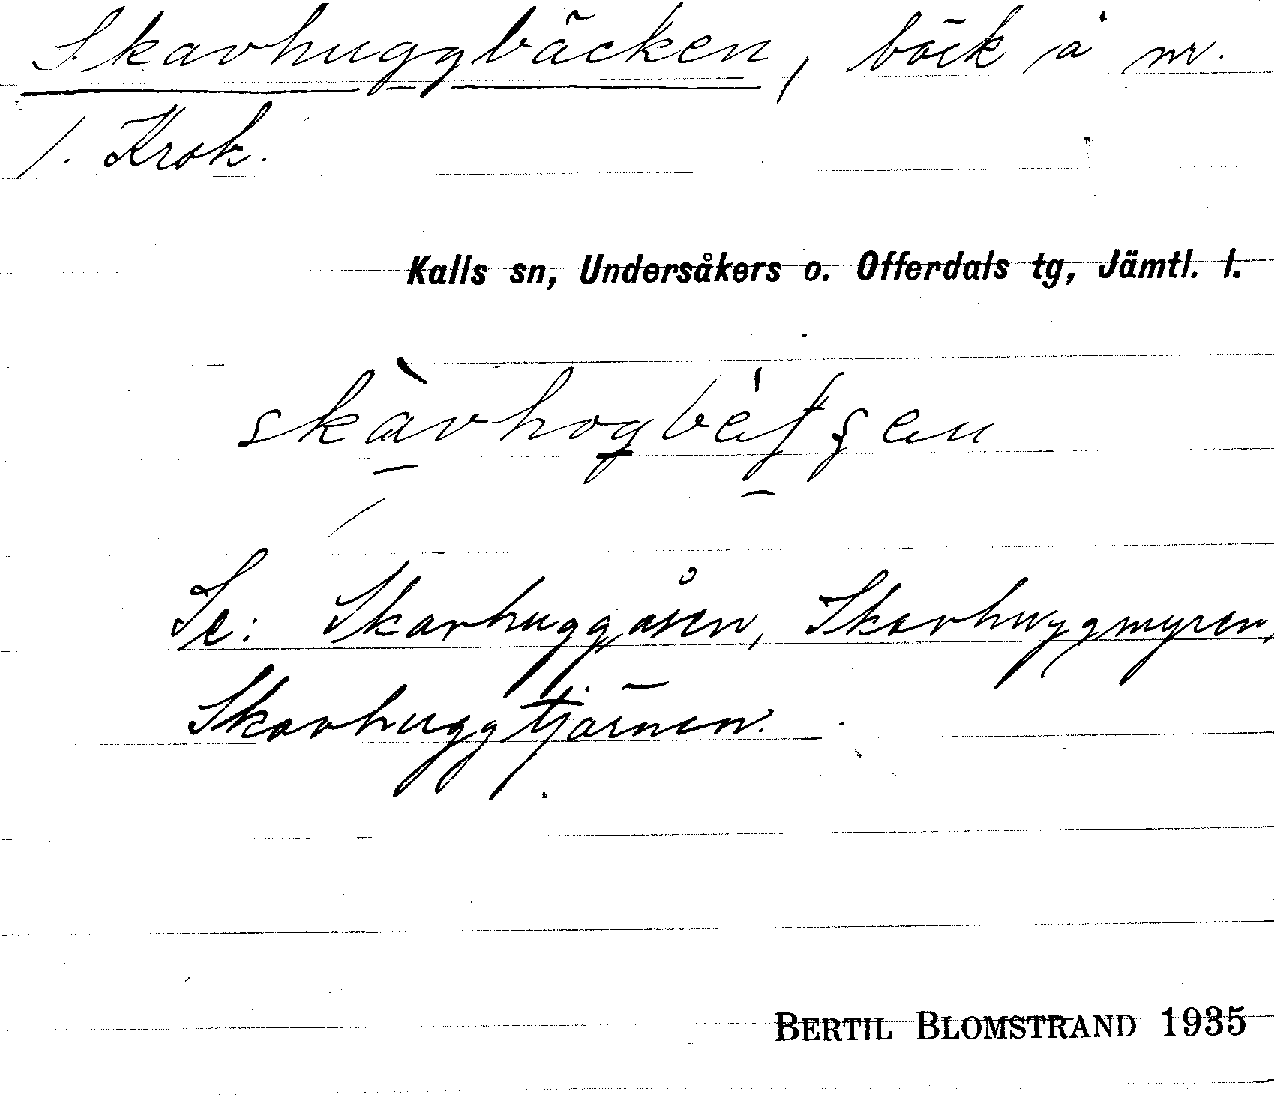 Skavhuggbäcken, bäck å nr.
1. Krok.
Kalls sn, Undersåkers o. Offerdals tg, Jämtl. l.
Se: Skavhuggåsen, Skavhuggmyren,
Skavhuggtjärnen.
BERTIL BLOMSTRAND 1935